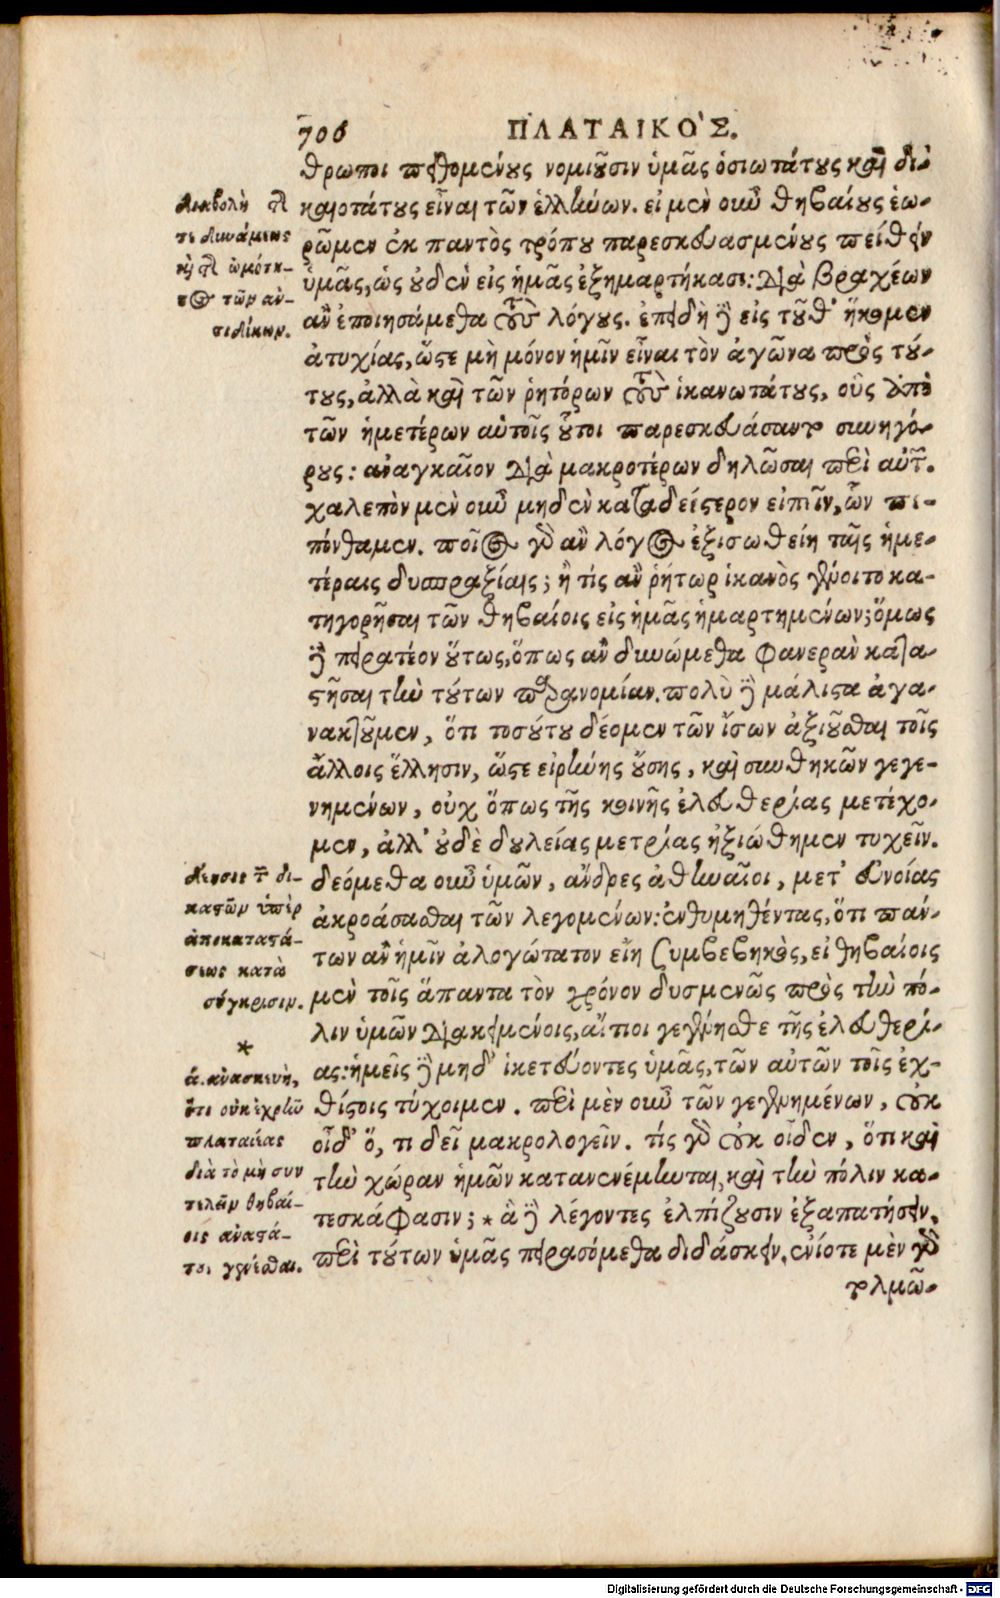 706
ΠΛΑΤΑΙΚΟ'Σ.
θρωποι πειθομένους νομιοῦσιν ὑμᾶς ὁσιωτάτους καὶ δι-
καιοτάτους εἶναι τῶν ἑλλήνων. εἰ μὲν οὖν θηβαίους ἑω-
ρῶμεν ἐκ παντὸς τρόπου παρεσκευασμένους πείθειν
ὑμᾶς, ὡς οὐδὲν εἰς ἡμᾶς ἐξημαρτήκασι: διὰ βραχέων
ἂν ἐποιησάμεθα τοὺς λόγους. ἐπειδὴ δὲ εἰς τοῦθ' ἥκομεν
ἀτυχίας, ὥστε μὴ μόνον ἡμῖν εἶναι τὸν ἀγῶνα πρὸς τού-
τους, ἀλλὰ καὶ τῶν ῥητόρων τοὺς ἱκανωτάτους, οὓς ἀπὸ
τῶν ἡμετέρων αὑτοῖς οὗτοι παρεσκευάσαντο συνηγό-
ρους: ἀναγκαῖον διὰ μακροτέρων δηλῶσαι περὶ αὐτῶν.
χαλεπὸν μὲν οὖν μηδὲν καταδεέστερον εἰπεῖν, ὧν πε-
πόνθαμεν. ποῖος γὰρ ἂν λόγος ἐξισωθείη ταῖς ἡμε-
τέραις δυσπραξίαις; ἢ τίς ἂν ῥήτωρ ἱκανὸς γένοιτο κα-
τηγορῆσαι τῶν θηβαίοις εἰς ἡμᾶς ἡμαρτημένων; ὅμως
δὲ πειρατέον οὕτως, ὅπως ἂν δυνώμεθα φανερὰν κατα-
στῆσαι τὴν τούτων παρανομίαν. πολὺ δὲ μάλιστα ἀγα-
νακτοῦμεν, ὅτι τοσούτου δέομεν τῶν ἴσων ἀξιοῦσθαι τοῖς
ἄλλοις ἕλλησιν, ὥστε εἰρήνης οὔσης, καὶ συνθηκῶν γεγε-
νημένων, οὐχ ὅπως τῆς κοινῆς ἐλευθερίας μετέχο-
μεν, ἀλλ' οὐδὲ δουλείας μετρίας ἠξιώθημεν τυχεῖν.
δεόμεθα οὖν ὑμῶν, ἄνδρες ἀθηναῖοι, μετ' εὐνοίας
ἀκροάσασθαι τῶν λεγομένων: ἐνθυμηθέντας, ὅτι πάν-
των ἂν ἡμῖν ἀλογώτατον εἴη συμβεβηκὸς, εἰ θηβαίοις
μὲν τοῖς ἅπαντα τὸν χρόνον δυσμενῶς πρὸς τὴν πό-
λιν ὑμῶν διακειμένοις, αἴτιοι γεγένησθε τῆς ἐλευθερί-
ας: ἡμεῖς δὲ μηδ' ἱκετεύοντες ὑμᾶς, τῶν αὐτῶν τοῖς ἐχ-
θίστοις τύχοιμεν. περὶ μὲν οὖν τῶν γεγενημένων, οὐκ
οἶδ' ὅ, τι δεῖ μακρολογεῖν. τίς γὰρ οὐκ οἶδεν, ὅτι καὶ
τὴν χώραν ἡμῶν κατανενέμηνται, καὶ τὴν πόλιν κα-
τεσκάφασιν; * ἃ δὲ λέγοντες ἐλπίζουσιν ἐξαπατήσειν,
περὶ τούτων ὑμᾶς πειρασόμεθα διδάσκειν. ἐνίοτε μὲν γὰρ
τολμῶ-
διαβολὴ τῆς
τε δυνάμεως
καὶ τῆς ὠμότη-
τος τῶν ἀν-
τιδίκων.
δέησις τῶν δι-
καστῶν ὑπὲρ
ἀποκαταστά-
σεως κατὰ
σύγκρισιν.
*
ά. κατασκευὴ,
ὅτι οὐκ ἐχρῆν
πλαταιέας
διὰ τὸ μὴ συν
τελεῖν θηβαί-
οις ἀναστά-
τοι γενέσθαι.
Digitalisierung gefördert durch die Deutsche Forschungsgemeinschaft - DFG